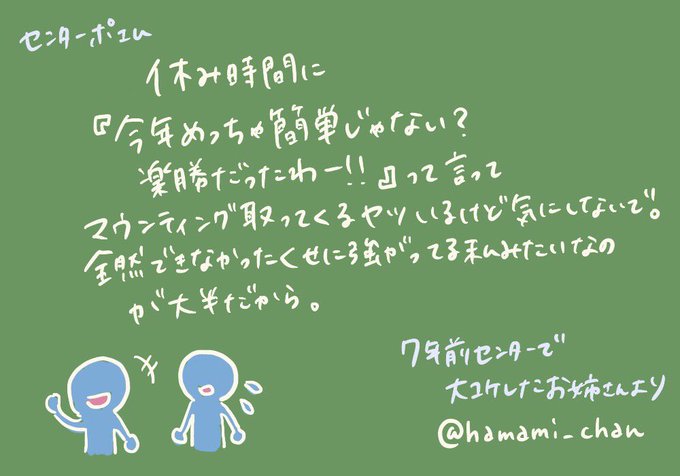 センターポエム
休み時間に
『今年めっちゃ簡単じゃない？
楽勝だったわー!!』って言って
マウンティング取ってくるヤツいるけど気にしないで。
全然できなかったくせに強がってる私みたいなの
が大半だから。
7年前センターで
大コケしたお姉さんより
@hamami_chan